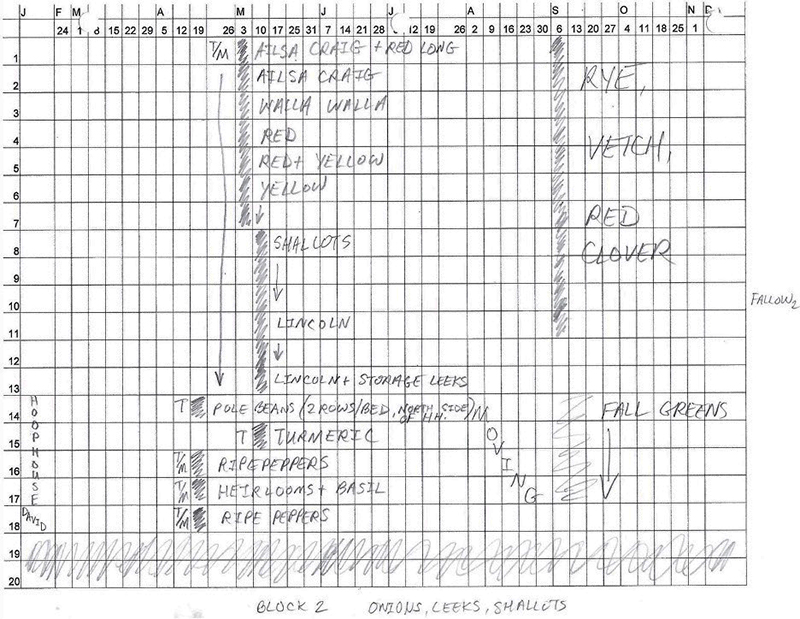 J F M A M J J A S O N D
24 1 8 15 22 29 5 12 19 26 3 10 17 24 31 7 14 21 28 12 19 26 2 9 16 23 30 6 13 20 27 4 11 18 25 1
1 T/M AILSA CRAIG + RED LONG
2 AILSA CRAIG RYE,
3 WALLA WALLA
4 RED VETCH,
5 RED + YELLOW
6 YELLOW
7 RED
8 SHALLOTS CLOVER
9
10 FALLOW 2
11 LINCOLN
12
13 LINCOLN + STORAGE LEEKS
14 T POLE BEANS (2 ROWS/BED, NORTH SIDE OF H.H.) FALL GREENS
15 T TURMERIC
16 T/M RIPE PEPPERS
17 T/M HEIRLOOMS + BASIL
18 T/M RIPE PEPPERS
19
20
HOOPHOUSE
DAVID
MOVING
BLOCK 2 ONIONS, LEEKS, SHALLOTS